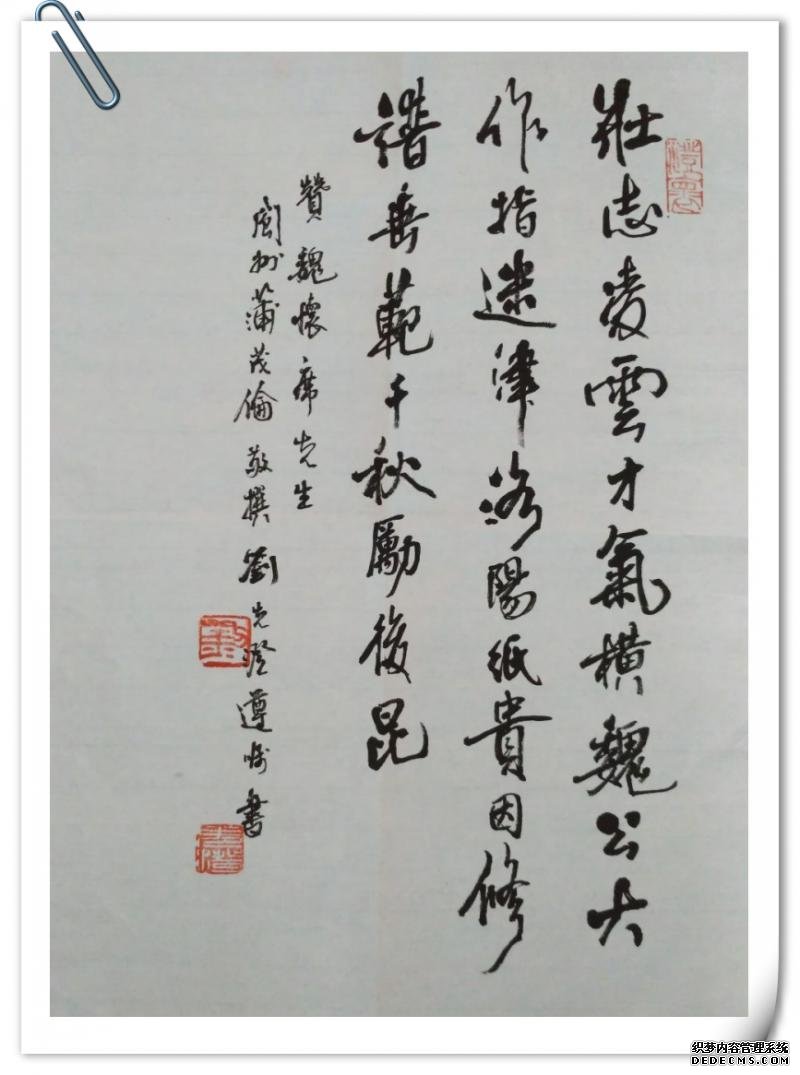 壯志凌雲才氣橫魏公大
作指迷津洛陽纸貴因修
譜垂範千秋勵後昆
贊魏懷席先生
閬州蒲茂倫敬撰劉先澄遵嘱書
织梦内容管理系统
DEDECMS.COM